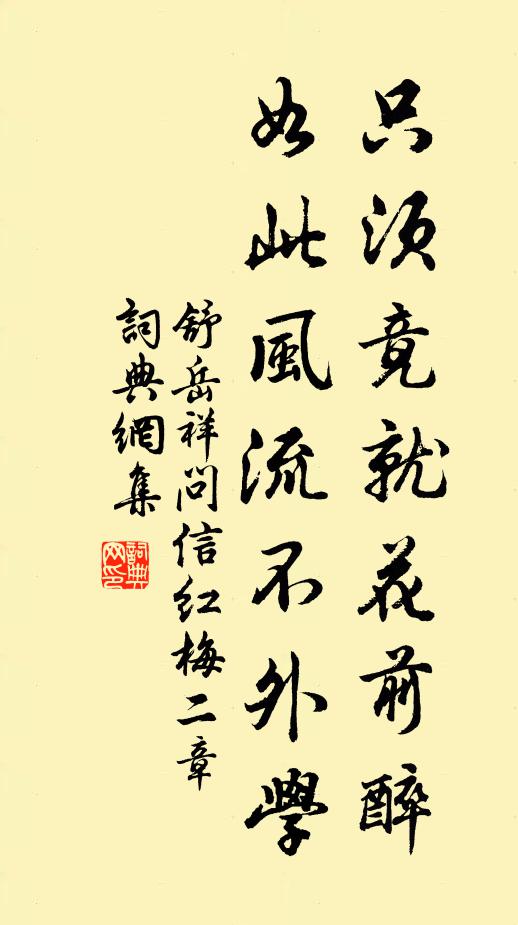 只須竟就花前醉
如此風流不外學
舒岳祥問信紅梅二章
詞典網集
詞典網印